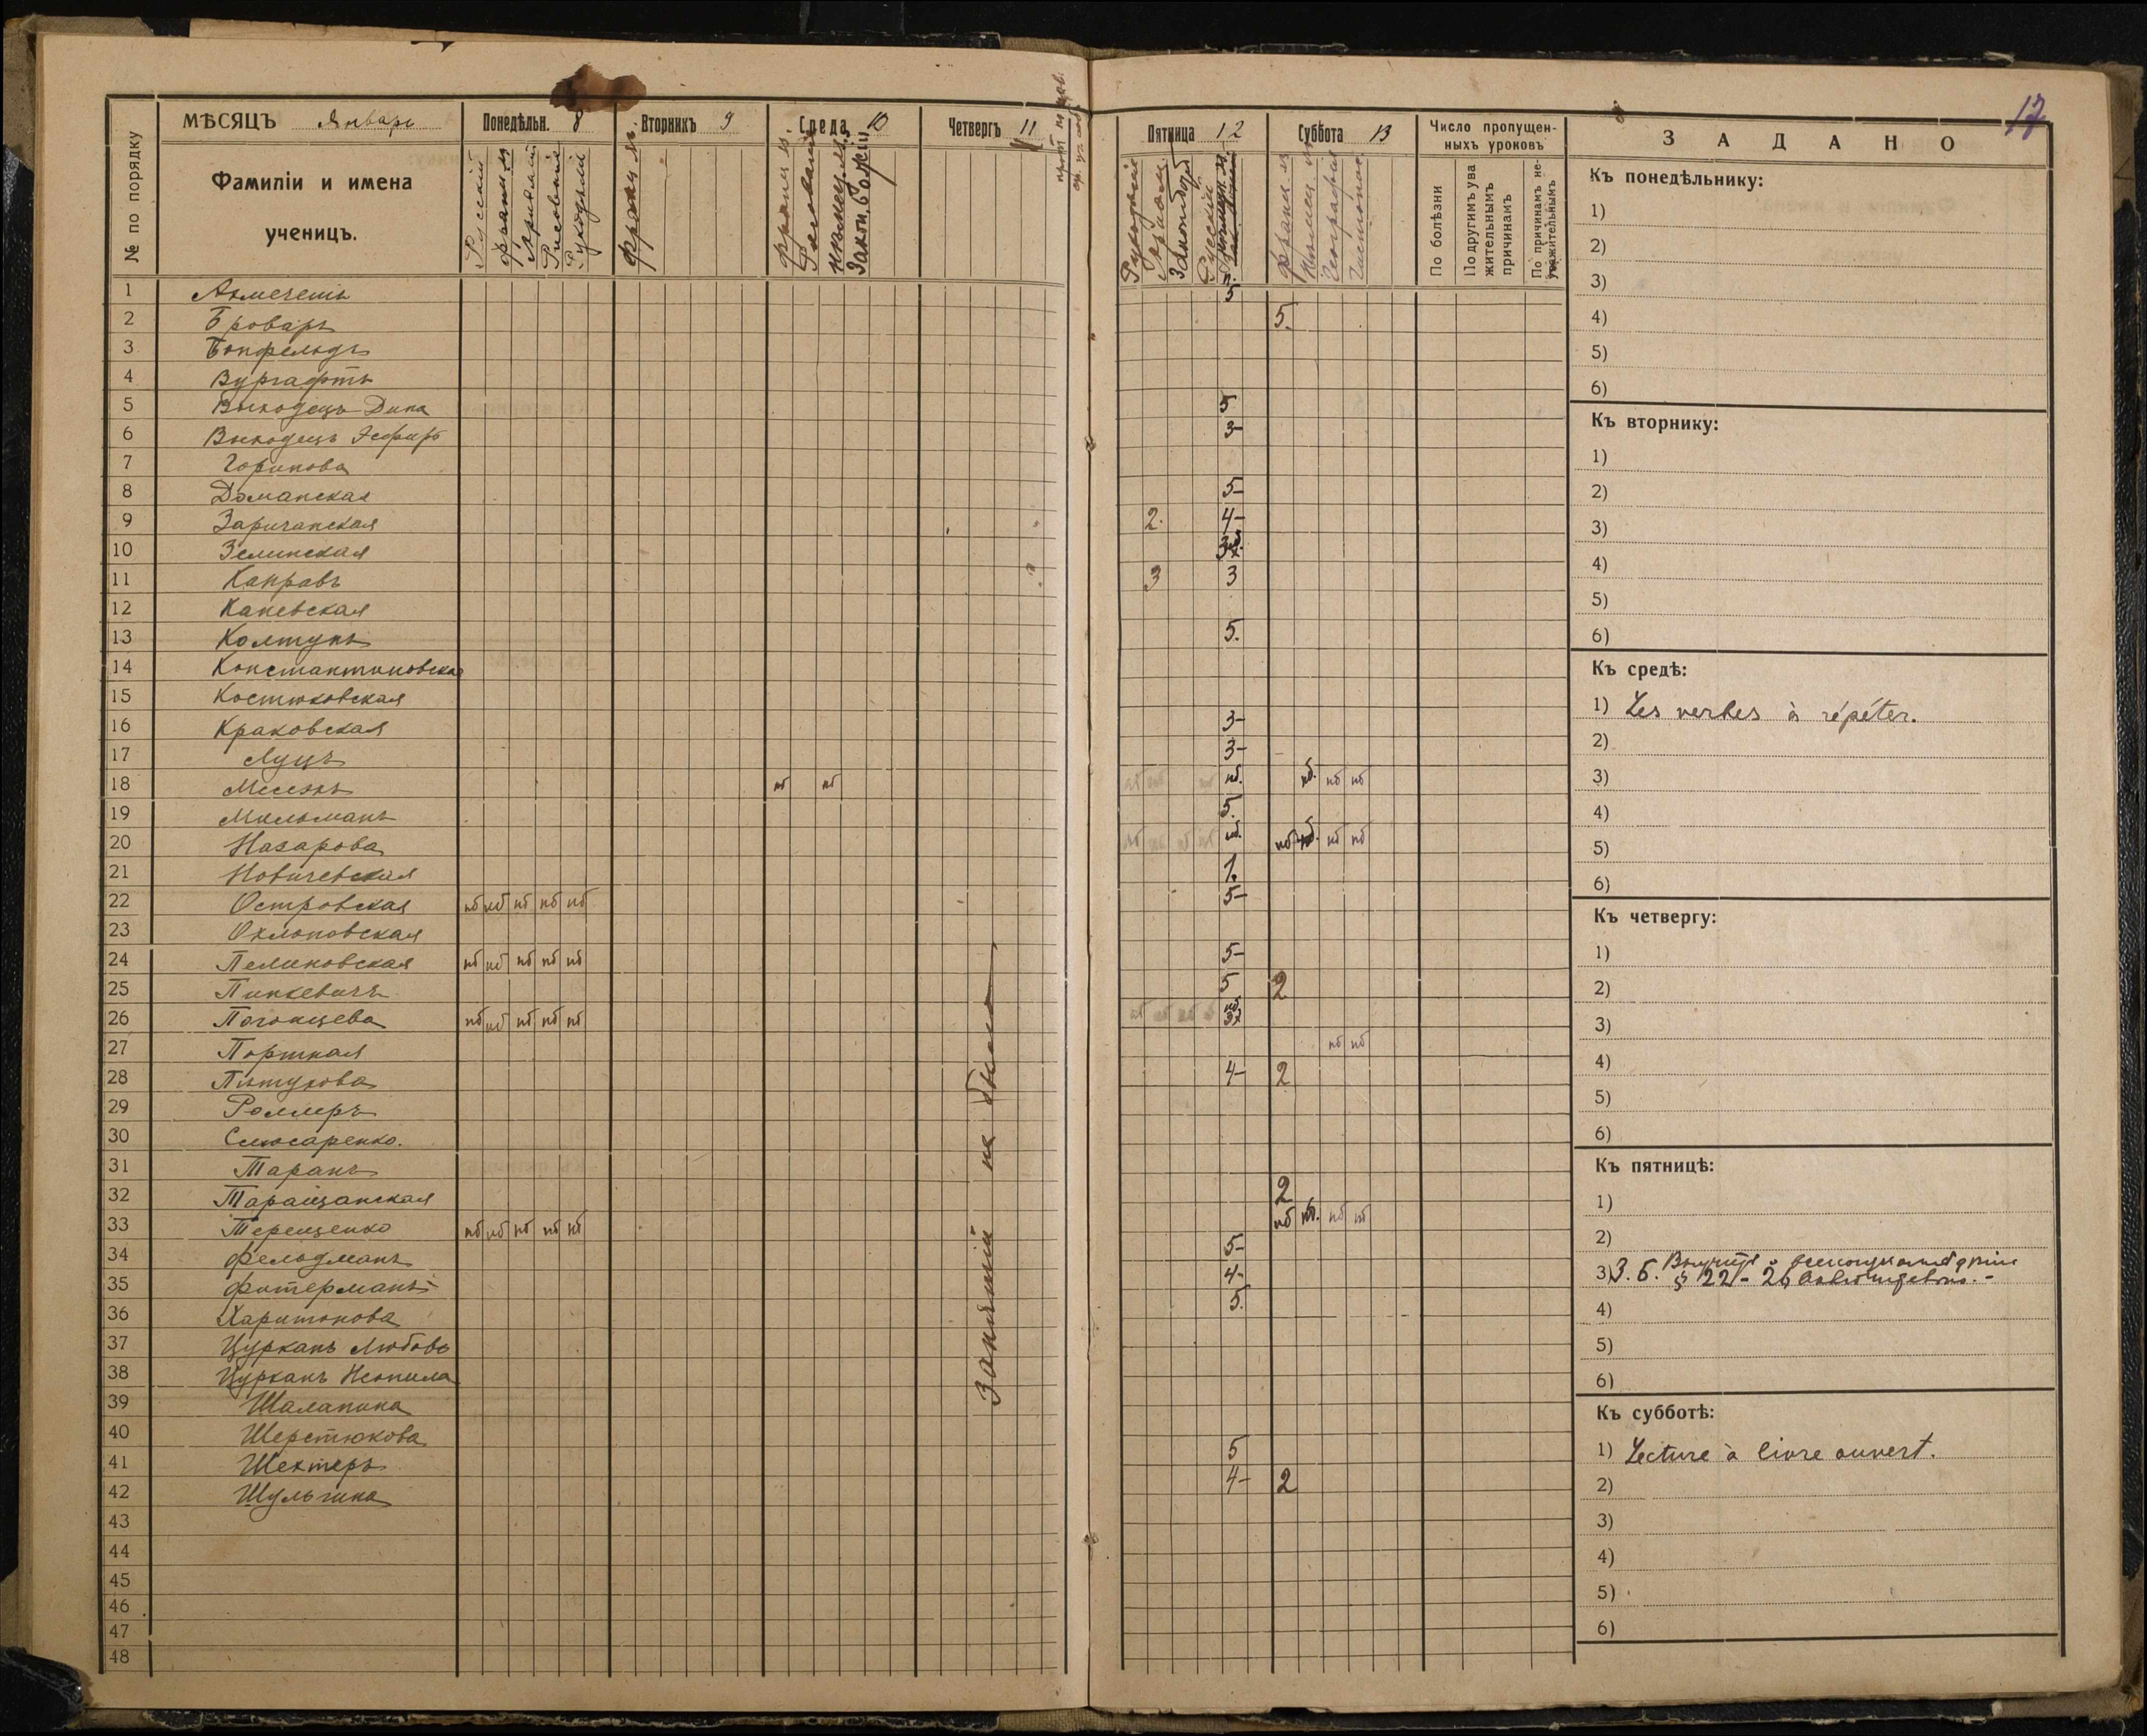 17
МѢСЯЦЪ Январь
Понедѣльн. 8
Вторникъ 9
Среда 10
Четвергъ 11
Пятница 12
Суббота 13
Число пропущен-
ныхъ уроковъ
ЗАДАНО
№ по порядку
Фамиліи и имена
ученицъ.
Русскій
франц. яз.
Рисованіе
Рукодѣліе
франц. яз.
франц. яз.
Рисованіе
нѣмец. яз.
Закон. Божій
Рукодѣліе
Русскій
франц. яз.
Нѣмец. яз.
Географія
Чистописан.
По болѣзни
По другимъ ува
жительнымъ
причинамъ
По причинамъ не-
уважительнымъ
1 Ахмечетъ 5
2 Броваръ 5.
3
4 Вургафтъ
5 Выходецъ Дина 5
6 Выходецъ Эсфирь 3-
7 Горинова
8 Доманская 5-
9 Заричанская 2. 4-
10 Зелинская
11 Каправъ 3 3
12 Каневская
13 Колтунъ 5.
14 Константиновская
15 Костюковская
16 Краковская 3-
17 Луцъ 3-
18 нб нб нб. нб. нб нб
19 Мильманъ 5.
20 Назарова нб. нб нб. нб нб
21 Новичевская 1.
22 Островская нб нб нб нб нб 5-
23 Охлоповская
24 Пелиновская нб нб нб нб нб 5-
25 Пинкевичъ 5 2
26 Погонцева нб нб нб нб нб
27 Порткая нб нб
28 Пѣтухова 4- 2
29 Роллеръ
30 Слюсаренко.
31 Таранъ
32 Таращанская 2
33 Терещенко нб нб нб нб нб нб нб. нб нб
34 Фельдманъ 5-
35 Фитерманъ 4-
36 Харитонова 5.
37 Цурканъ Любовь
38 Цурканъ Неонила
39 Шалапина
40 Шерстюкова
41 Шехтеръ 5
42 Шульгина 4- 2
43
44
45
46
47
48
Занятій не было
Къ понедѣльнику:
1)
2)
3)
4)
5)
6)
Къ вторнику:
1)
2)
3)
4)
5)
6)
Къ средѣ:
1) Les verbes à répéter.
2)
3)
4)
5)
6)
Къ четвергу:
1)
2)
3)
4)
5)
6)
Къ пятницѣ:
1)
2)
3) З. Б.
§ 22 - 26
4)
5)
6)
Къ субботѣ:
1) Lecture à livre ouvert.
2)
3)
4)
5)
6)